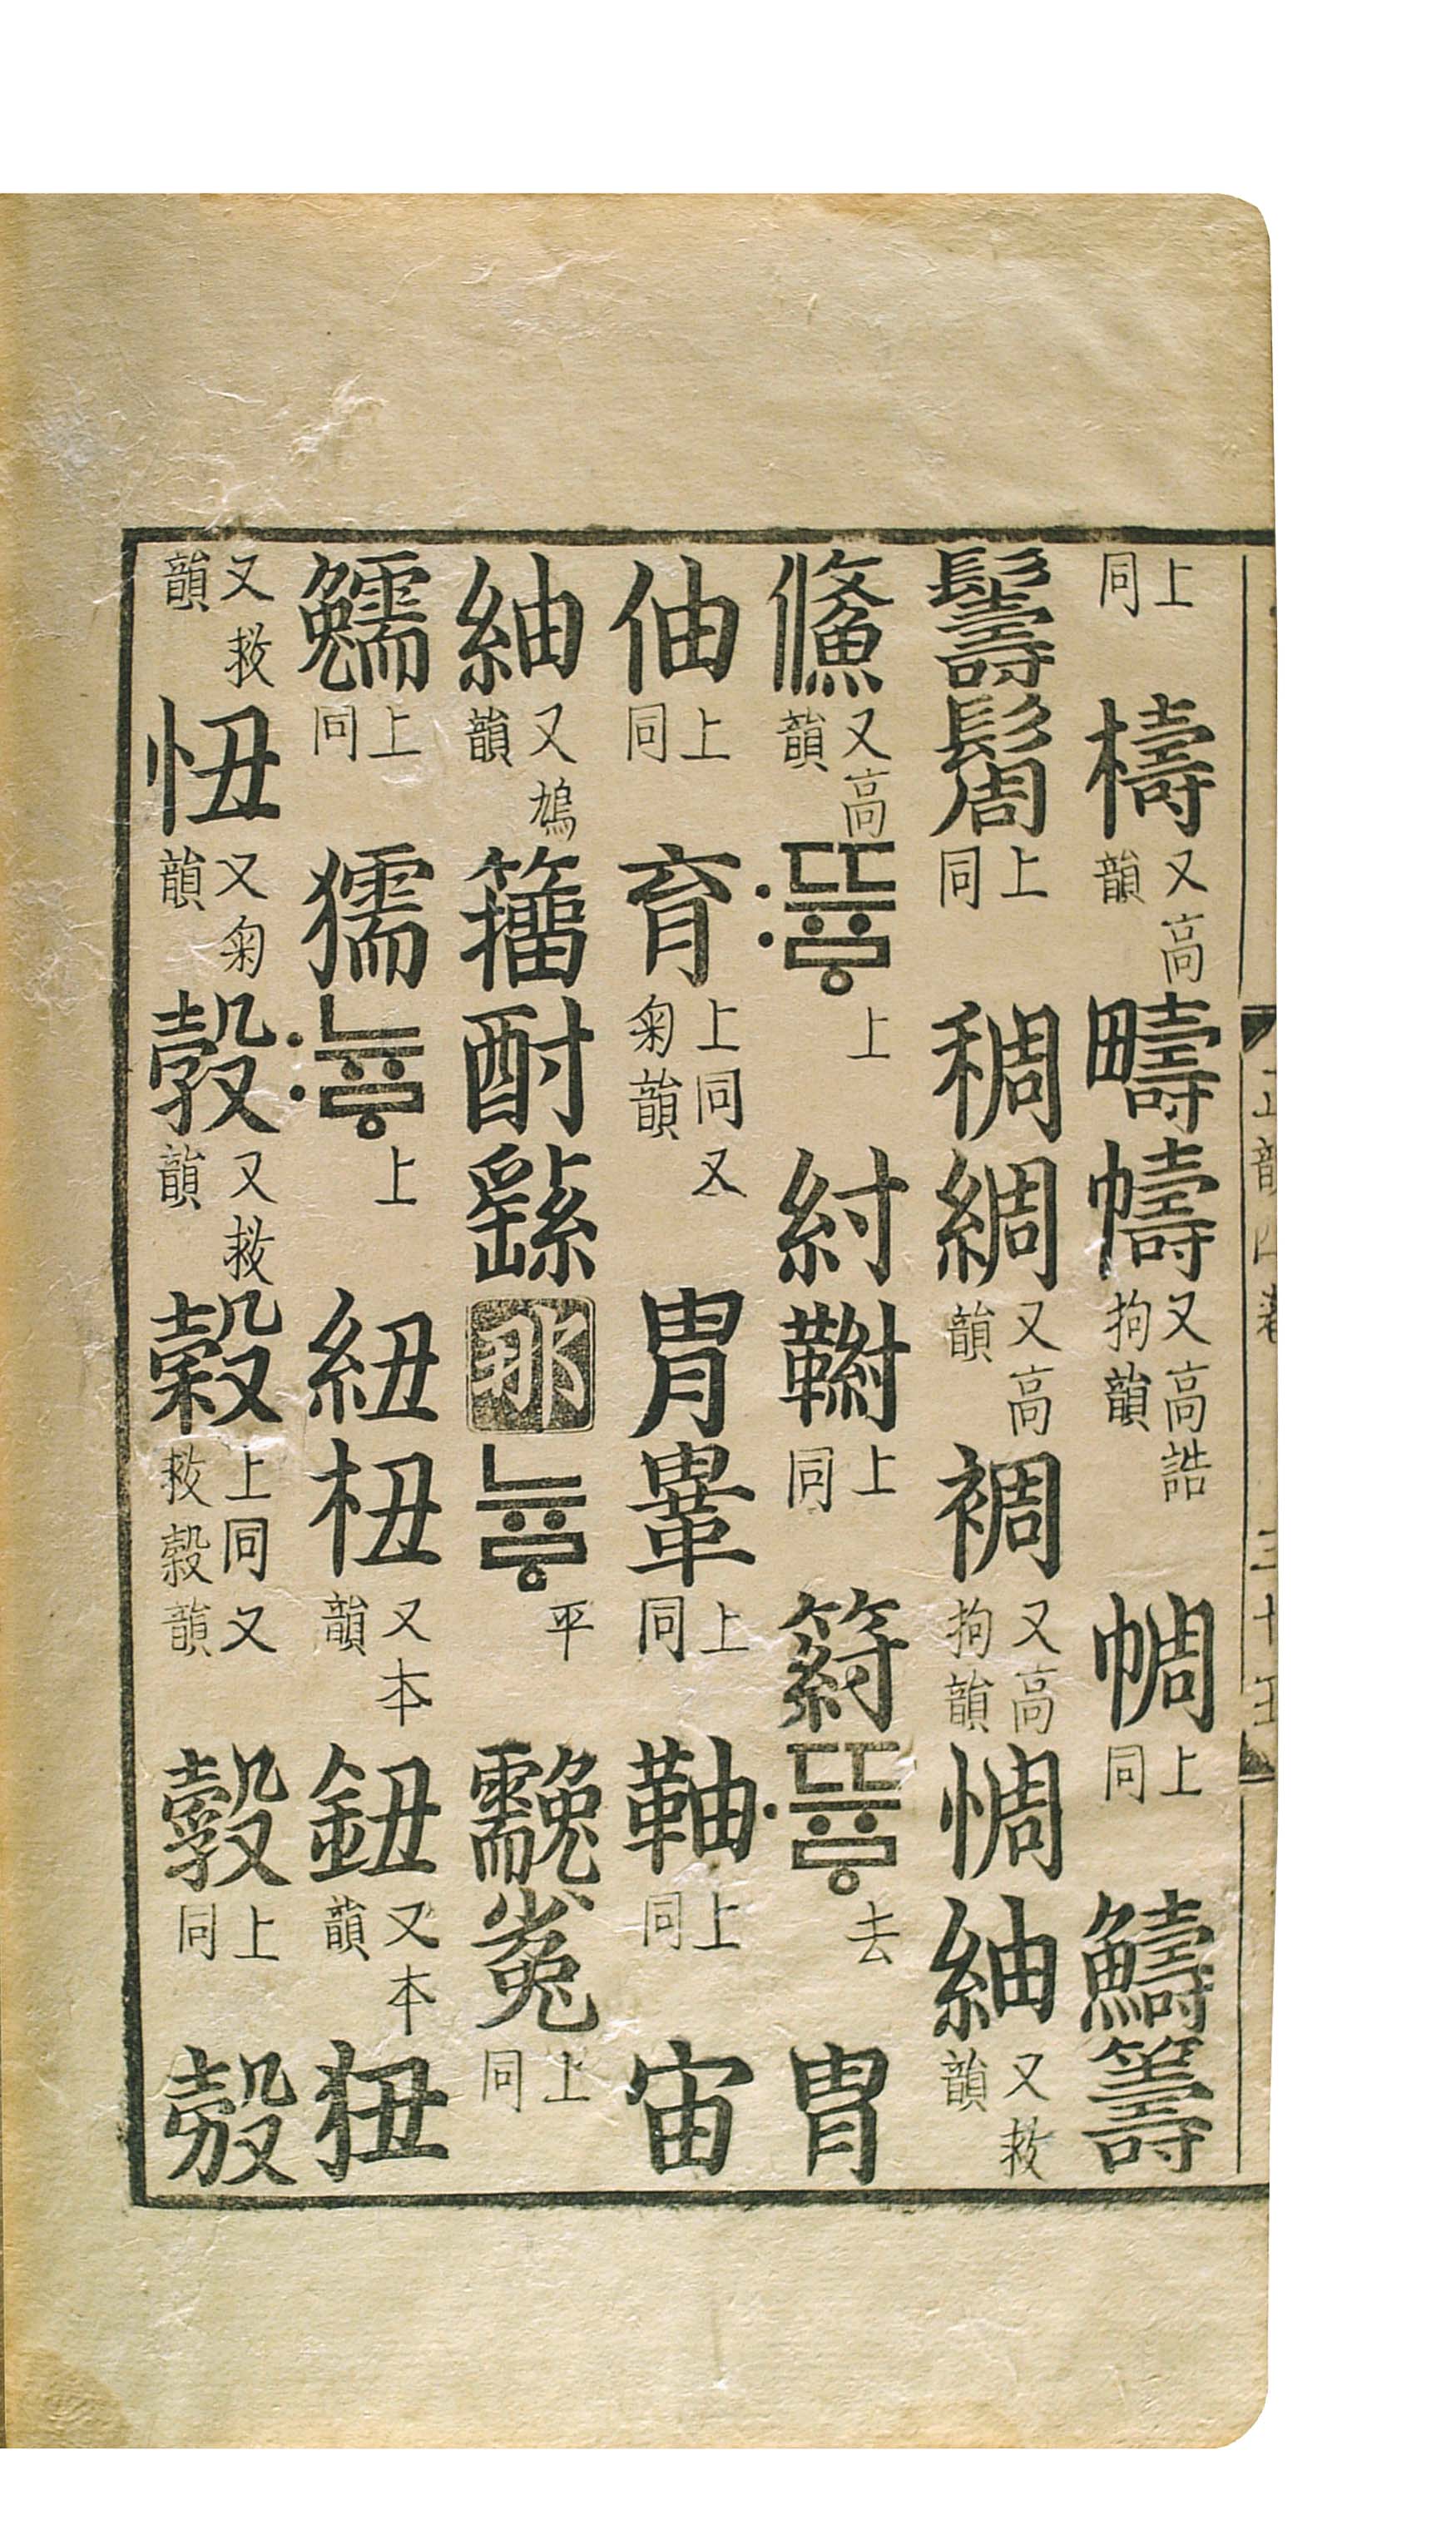 上同 檮 又高韻 疇 幬 又高誥拘韻 㡏 上同 籌
上同 稠 綢 又高韻 裯 又高拘韻 惆 紬 又救韻
鯈 又高韻 뜌ᇢ〯 上 紂 上同 뜌ᇢ〮 去 胄
伷 上同 育 上同又菊韻 冑 上同 上同 宙
紬 又鳩韻 籒 酎 繇 那 뉴ᇢ 平 上同
上同 獳 뉴ᇢ〯 上 紐 杻 又本韻 鈕 又本韻 狃
又救韻 忸 又菊韻 㝅 又救韻 上同又救穀韻 上同
正韻四卷 三十五